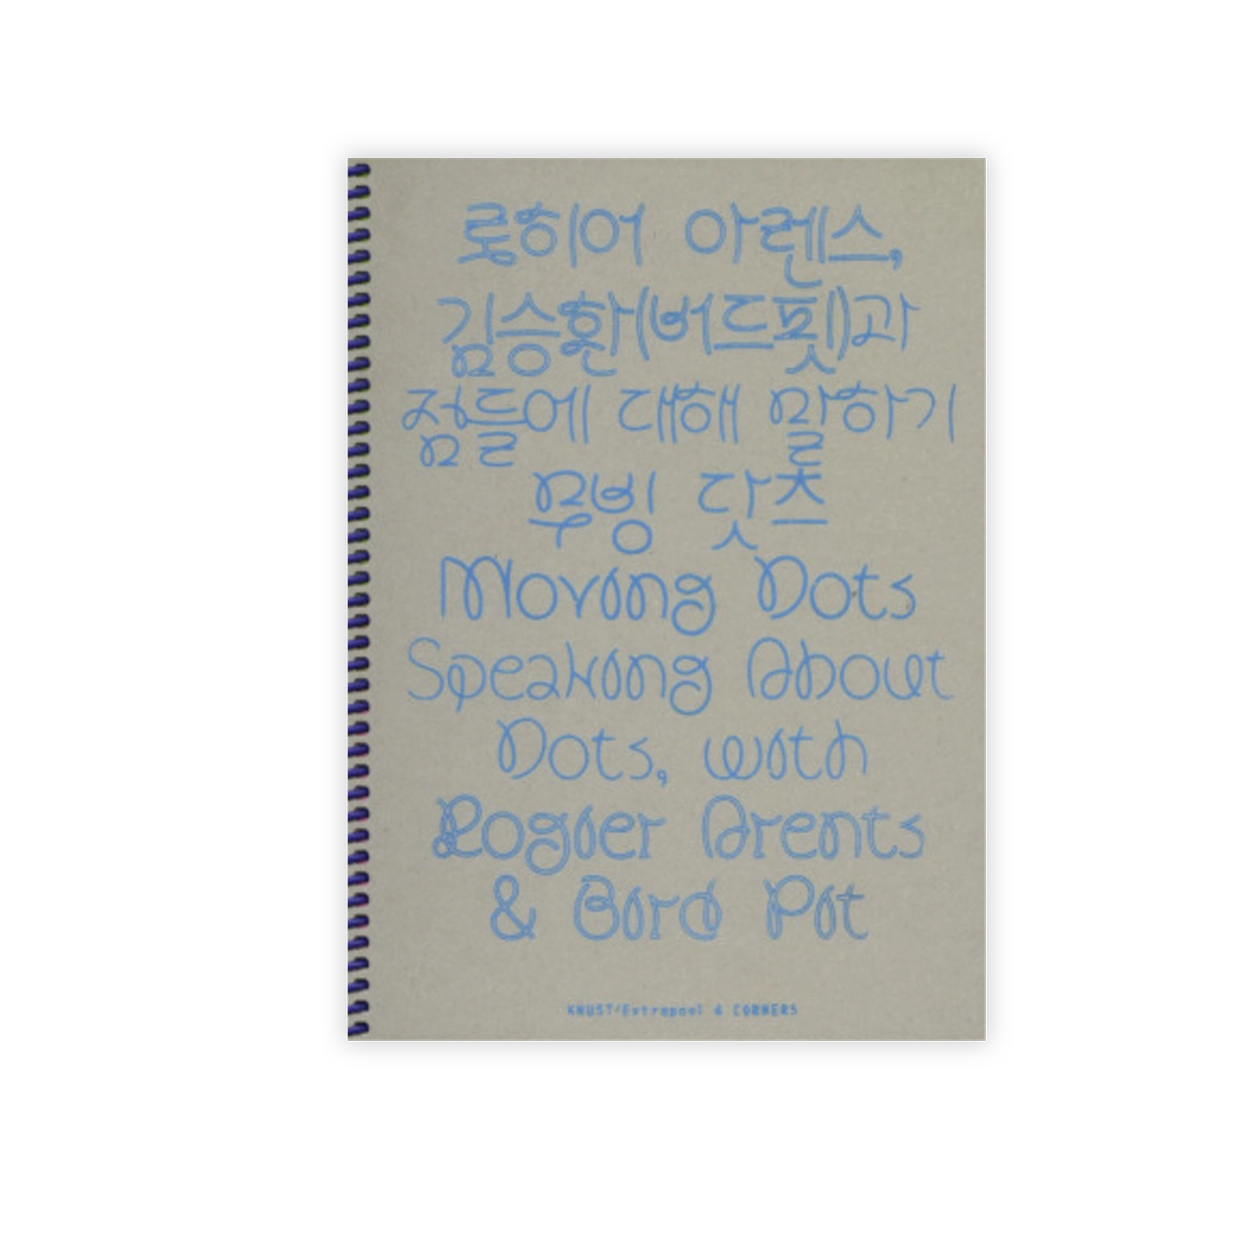 롷히어 아렌스,
김승환(버드핏)과
점들에 대해 말하기
무빙 닷츠
Moving Dots
Speaking About
Dots, with
Rogier Arents
& Bird Pit
KNUST/Extrapool & CORNERS